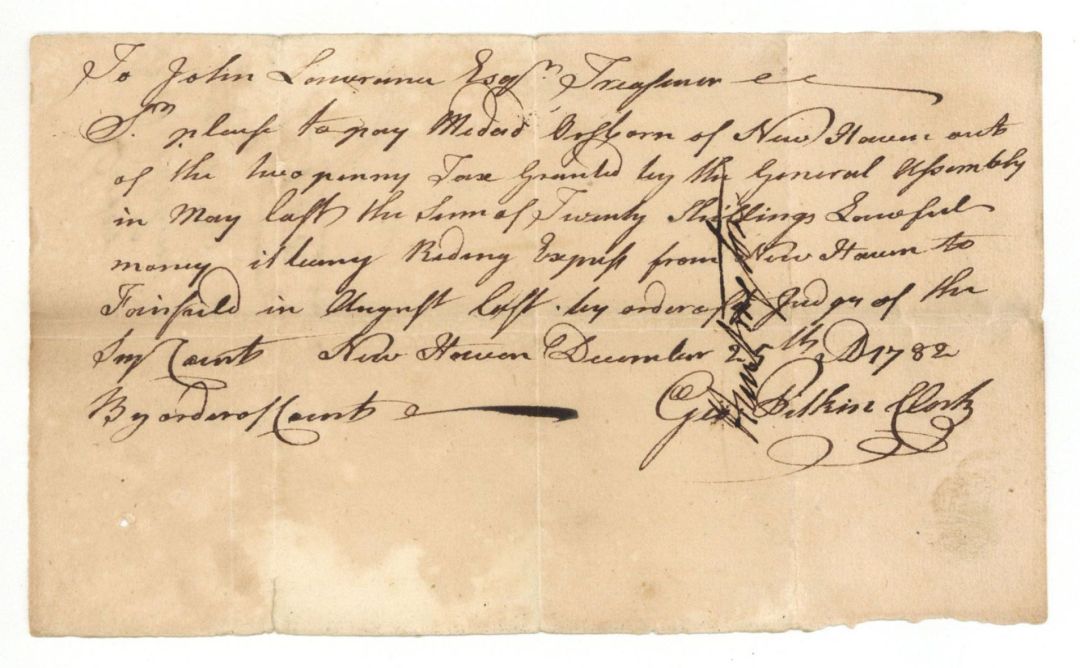 To John Lawrence Esqr. Treasurer
Sr. please to pay Medad Osborn of New Haven out
of the two penny Tax Granted by the General Assembly
in May last the Sum of Twenty Shillings Lawful
money it being Riding Express from New Haven to
Fairfield in August last by order of Judges of the
Supr Court New Haven December 25th AD 1782
By order of Court Geo Pitkin Clerk